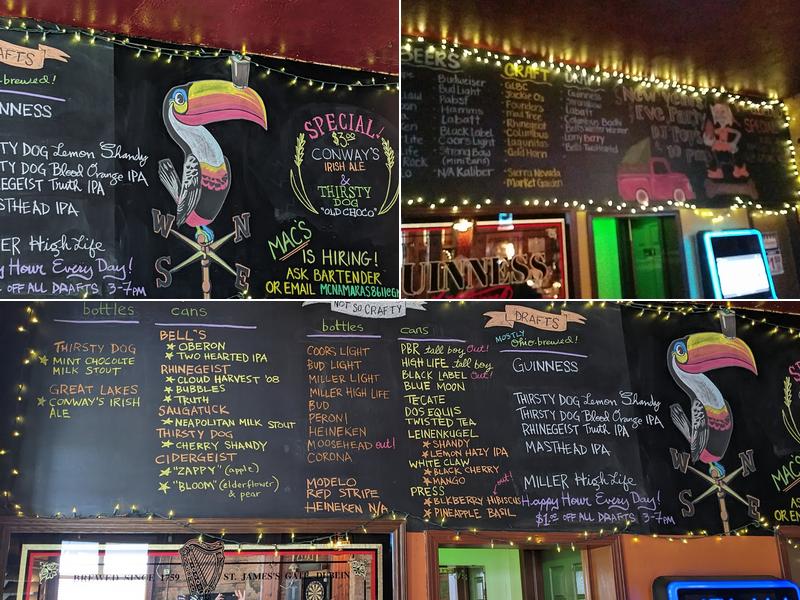 AFTS
o-brewed!
NNESS
TY DOG Lemon Shandy
TY DOG Blood Orange IPA
NEGEIST Truth IPA
ASTHEAD IPA
ER High Life
y Hour Every Day!
OFF ALL DRAFTS 3-7PM
W N
S E
SPECIAL!
$3.50
CONWAY'S
IRISH ALE
&
THIRSTY
DOG
"OLD CHOCO"
MAC'S
IS HIRING!
ASK BARTENDER
OR EMAIL MCNAMARAS8611@GM
BEERS
Budweiser
Bud Light
Pabst
Hamms
Labatt
Black Label
Coors Light
Strong Bow
(mini bang)
N/A Kaliber
Lite
Rock
CRAFT
GLBC
Founders
Mad Tree
Rhinegeist
Columbus
Lagunitas
Sierra Nevada
Market Garden
Guinness
Labatt
Columbus Bodhi
Bells Winter
Bells Two Hearted
New Year's
Eve Party
GUINNESS
bottles
THIRSTY DOG
MINT CHOCOLTE
MILK STOUT
GREAT LAKES
CONWAY'S IRISH
ALE
cans
BELL'S
OBERON
TWO HEARTED IPA
RHINEGEIST
CLOUD HARVEST '08
BUBBLES
TRUTH
SAUGATUCK
NEAPOLITAN MILK STOUT
THIRSTY DOG
CHERRY SHANDY
CIDERGEIST
"ZAPPY" (apple)
"BLOOM" (elderflower)
& pear
NOT SO CRAFTY
bottles
COORS LIGHT
BUD LIGHT
MILLER LIGHT
MILLER HIGH LIFE
BUD
PERONI
HEINEKEN
MOOSEHEAD out!
CORONA
MODELO
RED STRIPE
HEINEKEN N/A
cans
PBR tall boy Out!
HIGH LIFE tall boy
BLACK LABEL Out!
BLUE MOON
TECATE
DOS EQUIS
TWISTED TEA
LEINENKUGEL
SHANDY
LEMON HAZY IPA
WHITE CLAW
BLACK CHERRY
MANGO
PRESS out!
BLKBERRY HIBISCUS
PINEAPPLE BASIL
DRAFTS
MOSTLY
Ohio-brewed!
GUINNESS
THIRSTY DOG Lemon Shandy
THIRSTY DOG Blood Orange IPA
RHINEGEIST Truth IPA
MASTHEAD IPA
MILLER High Life
Happy Hour Every Day!
$1.00 OFF ALL DRAFTS 3-7PM
W N
S E
MAC'S
ASK
OR EM
BREWED SINCE 1759 ST. JAMES'S GATE DUBLIN